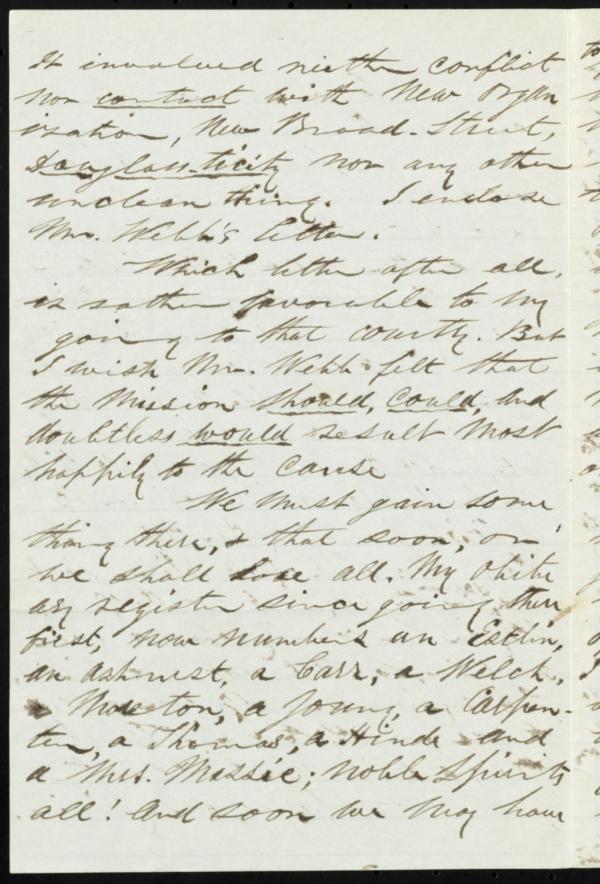 It involved neither conflict
nor contact with New Organ
ization, New Broad-Street,
Douglass-ticity nor any other
unclean thing. I enclose
Mr. Webb's letter.
Which letter after all,
is rather favorable to my
going to that country. But
I wish Mr. Webb felt that
the Mission should, could, and
doubtless would result most
happily to the cause
We must gain some
thing there, & that soon, or
we shall lose all. My obitu
ary register since going there
first, now numbers an Estlin,
an Ashurst, a Carr, a Welch,
a Morton, a Young, a Carpen-
ter, a Thomas, a Hinde and
a Mrs. Massie; noble spirits
all! And soon we may have